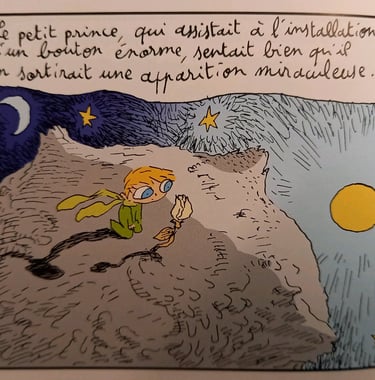 Le petit prince, qui assistait à l'installation
d'un bouton énorme, sentait bien qu'il
en sortirait une apparition miraculeuse.